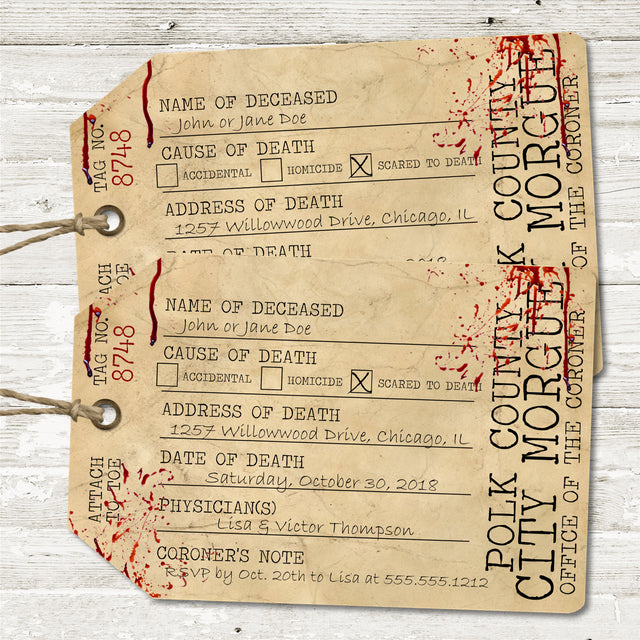 TAG NO.
8748
NAME OF DECEASED
John or Jane Doe
CAUSE OF DEATH
ACCIDENTAL HOMICIDE SCARED TO DEATH
ADDRESS OF DEATH
1257 Willowwood Drive, Chicago, IL
DATE OF DEATH
2018
TOE
COUNTY
MORGUE
OF THE CORONER
TAG NO.
8748
ATTACH
TO TOE
NAME OF DECEASED
John or Jane Doe
CAUSE OF DEATH
ACCIDENTAL HOMICIDE SCARED TO DEATH
ADDRESS OF DEATH
1257 Willowwood Drive, Chicago, IL
DATE OF DEATH
Saturday, October 30, 2018
PHYSICIAN(S)
Lisa & Victor Thompson
CORONER'S NOTE
RSVP by Oct. 20th to Lisa at 555.555.1212
POLK COUNTY
CITY MORGUE
OFFICE OF THE CORONER